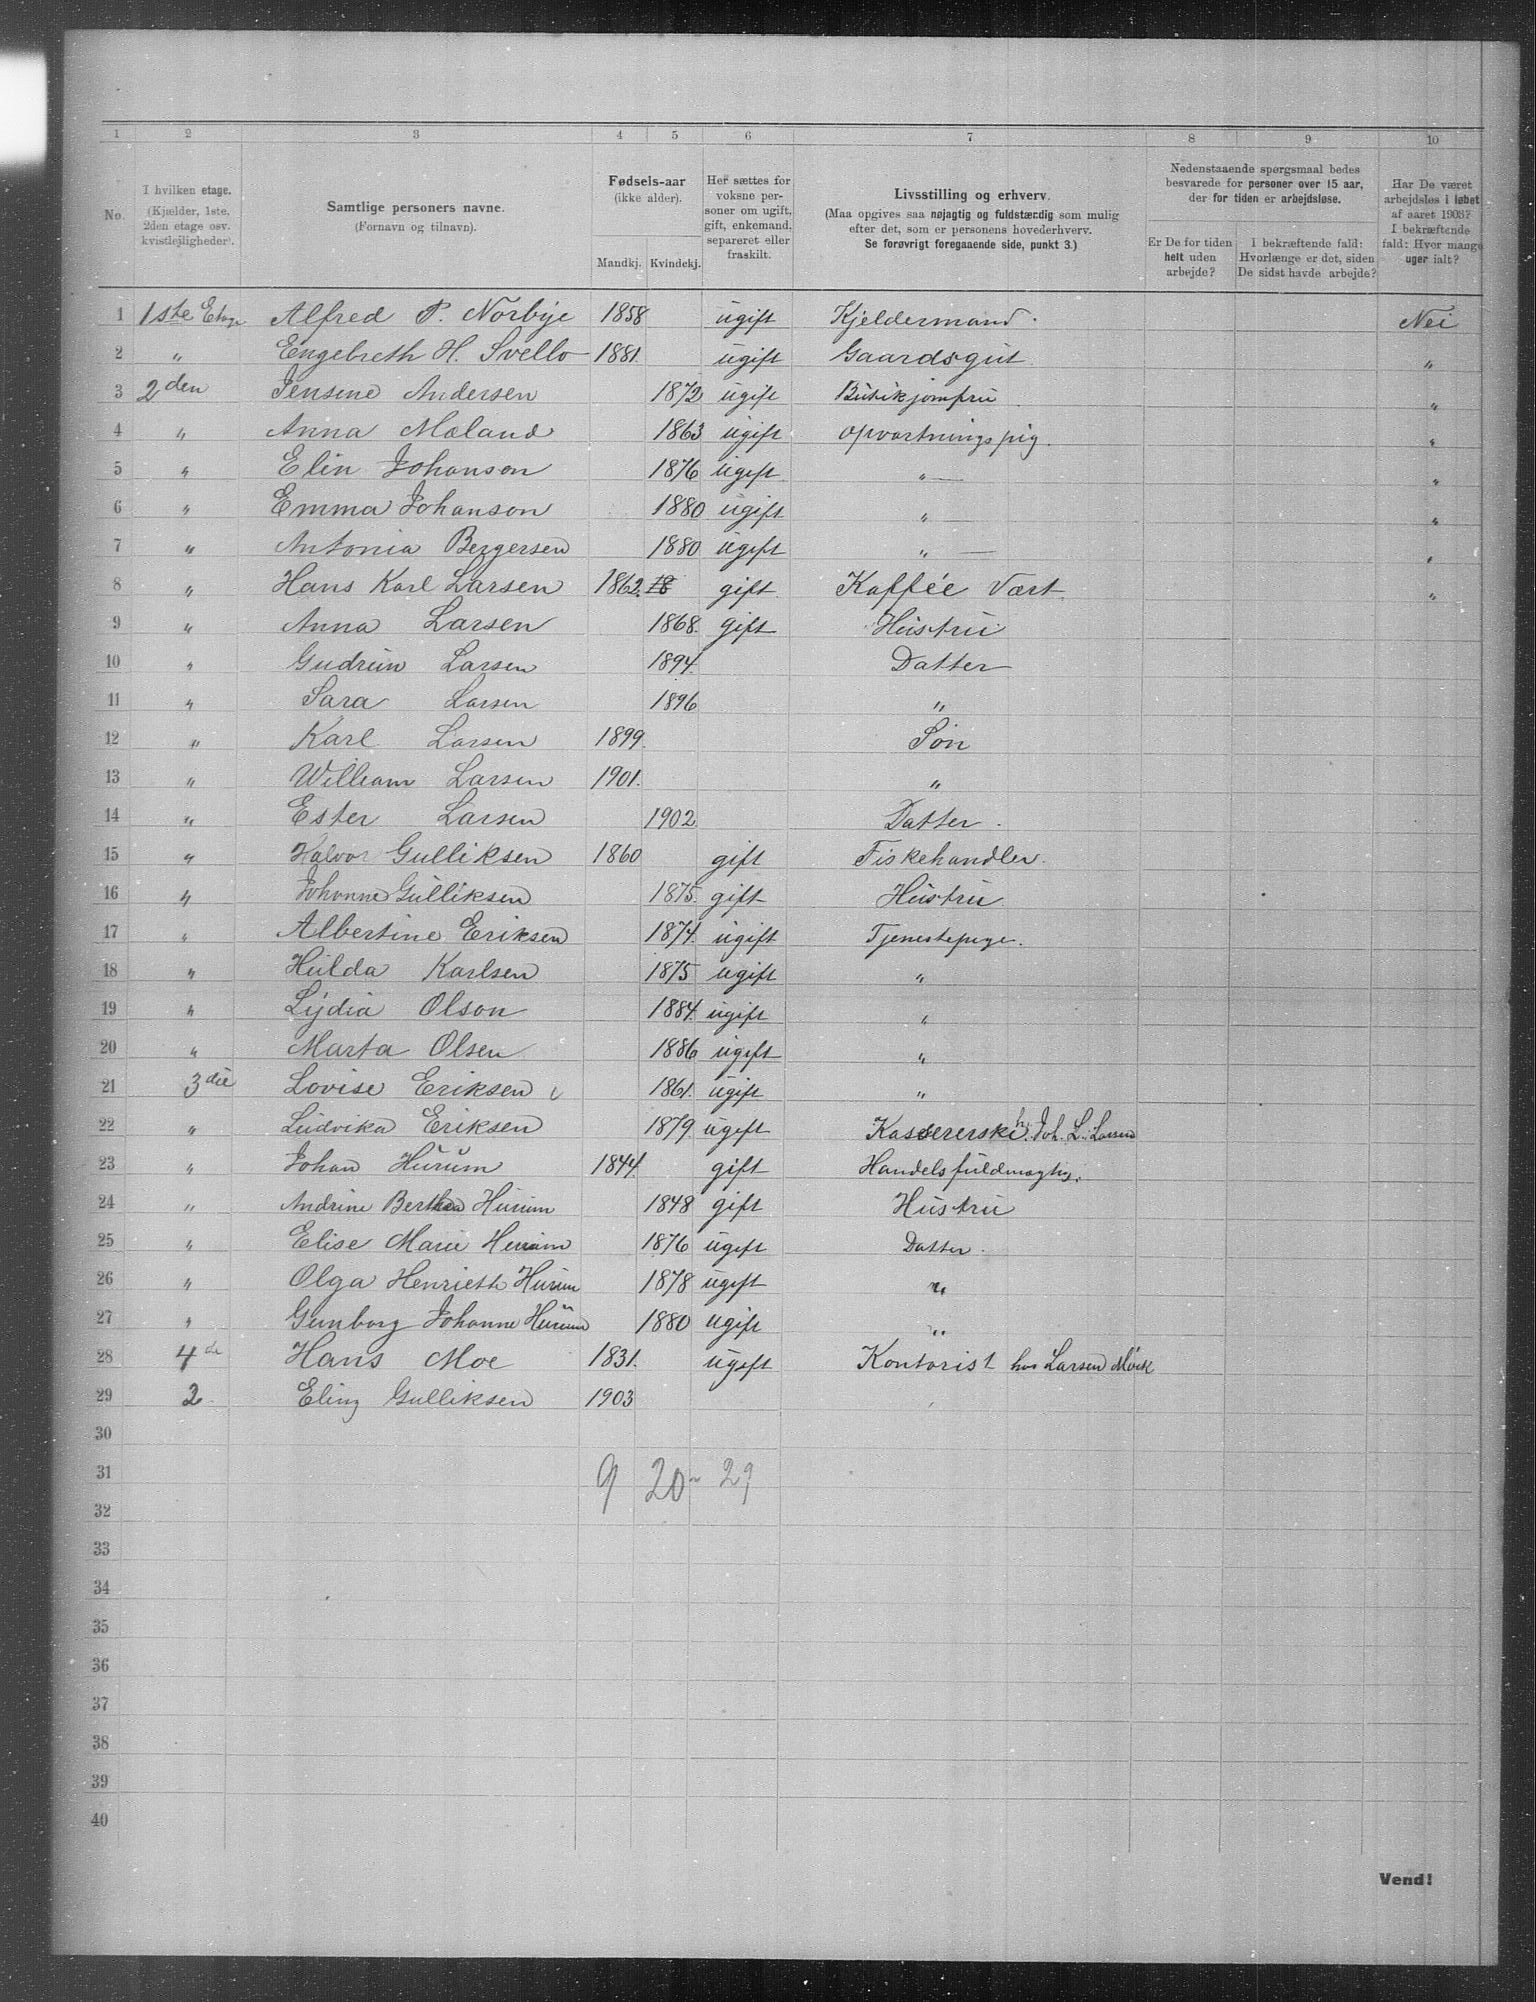 1 2 3 4 5 6 7 8 9 10
No.
I hvilken etage. (Kjælder, 1ste, 2den etage osv. kvistlejligheder).
Samtlige personers navne. (Fornavn og tilnavn).
Fødsels-aar (ikke alder). Mandkj. Kvindekj.
Her sættes for voksne personer om ugift, gift, enkemand, separeret eller fraskilt.
Livsstilling og erhverv. (Maa opgives saa nøjagtig og fuldstændig som mulig efter det, som er personens hovederhverv. Se forøvrigt foregaaende side, punkt 3.)
Nedenstaaende spørgsmaal bedes besvarede for personer over 15 aar, der for tiden er arbejdsløse.
Er De for tiden helt uden arbejde?
I bekræftende fald: Hvorlænge er det, siden De sidst havde arbejde?
Har De været arbejdsløs i løbet af aaret 1903? I bekræftende fald: Hvor mange uger ialt?
1 1ste Etage Alfred P. Norbye 1858 ugift Kjeldermand. Nei
2 " Engebreth H. Svello 1881. ugift Gaardsgut "
3 2den Jensine Andersen 1872 ugift Butikjomfru "
4 " Anna Mæland 1863 ugift opvartningspig. "
5 " Elin Johanson 1876 ugift " "
6 " Emma Johanson 1880 ugift " "
7 " Antonia Bergersen 1880 ugift " "
8 " Hans Karl Larsen 1862. 18 gift Kaffée Vært. "
9 " Anna Larsen 1868. gift Hustru
10 " Gudrun Larsen 1894. Datter
11 " Sara Larsen 1896 "
12 " Karl Larsen 1899. Søn
13 " William Larsen 1901. "
14 " Ester Larsen 1902 Datter.
15 " Halvor Gulliksen 1860 gift Fiskehandler.
16 " Johanne Gulliksen 1875. gift Hustru
17 " Albertine Eriksen 1874. ugift Tjenestepige.
18 " Hulda Karlsen 1875 ugift "
19 " Lydia Olson 1884. ugift "
20 " Marta Olsen 1886 ugift "
21 3die Lovise Eriksen 1861. ugift "
22 " Ludvika Eriksen 1879. ugift Kassererske h. Joh. L. Larsen
23 " Johan Hurum 1844. gift Handelsfuldmægtig.
24 " Andrine Berthea Hurum 1848 gift Hustru
25 " Elise Marie Hurum 1876 ugift Datter.
26 " Olga Henrieth Hurum 1878 ugift "
27 " Gunborg Johanne Hurum 1880 ugift "
28 4de Hans Moe 1831. ugift Kontorist hos Larsen Mørk
29 2. Eling Gulliksen 1903
30
31 9 20 - 29
32
33
34
35
36
37
38
39
40
Vend!